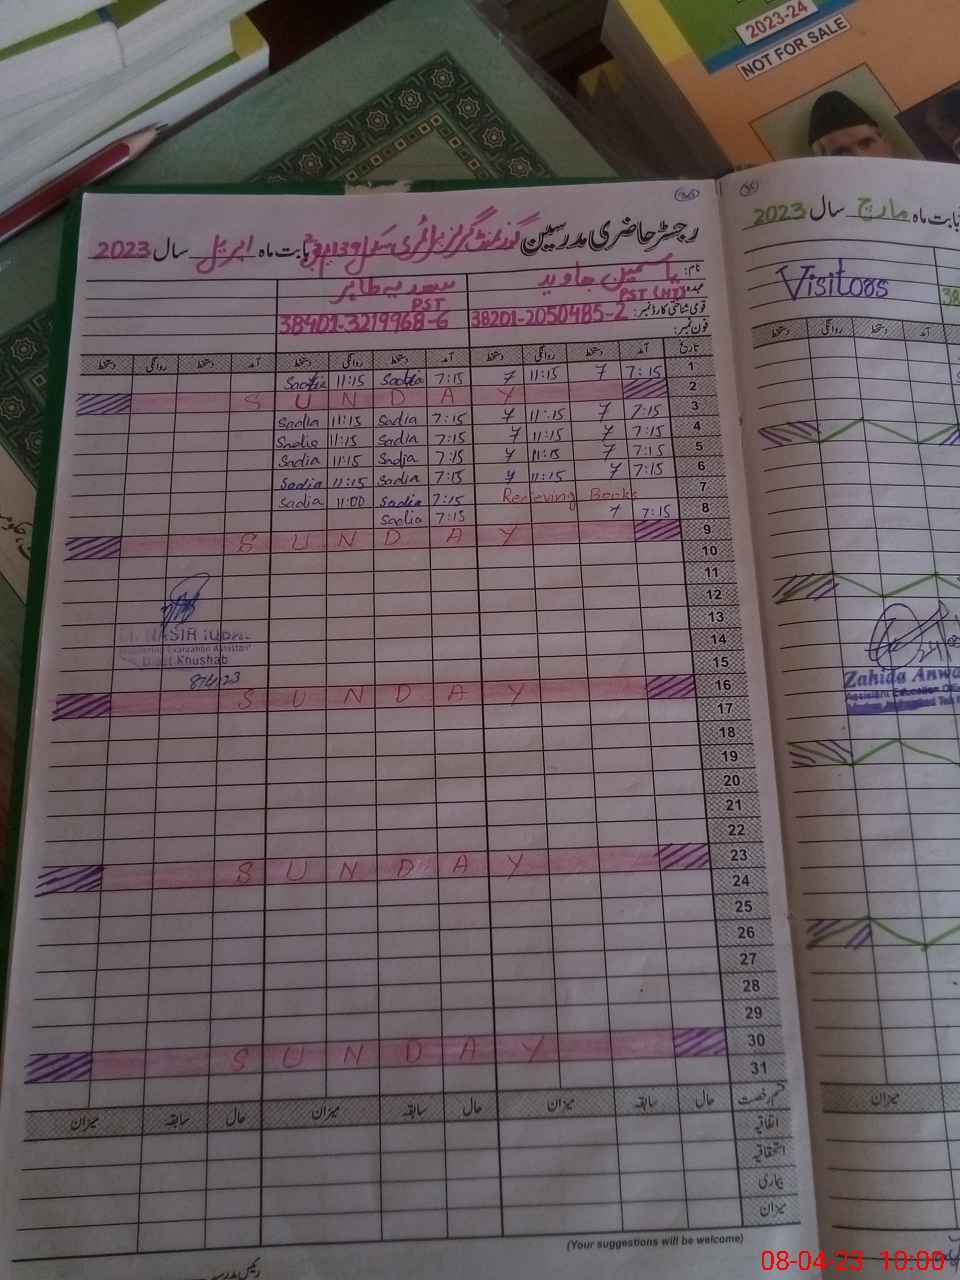 2023-24
NOT FOR SALE
رجسٹر حاضری مدرسین گورنمنٹ گرلز پرائمری سکول بابت ماہ اپریل سال 2023
نام: یاسمین جاوید سعدیہ طاہر
عہدہ: PST (HT) PST
قومی شناختی کارڈ نمبر: 38201-2050485-2 38401-3219968-6
فون نمبر:
تاریخ آمد دستخط روانگی دستخط آمد دستخط روانگی دستخط آمد دستخط روانگی دستخط
1 7:15 11:15 7:15 Sadia 11:15 Sadia
2 SUNDAY
3 7:15 11:15 7:15 Sadia 11:15 Sadia
4 7:15 11:15 7:15 Sadia 11:15 Sadia
5 7:15 11:15 7:15 Sadia 11:15 Sadia
6 7:15 11:15 7:15 Sadia 11:15 Sadia
7 Recieving Books 7:15 Sadia 11:00 Sadia
8 7:15 7:15 Sadia
9 SUNDAY
10
11
12
13
14
15
16 SUNDAY
17
18
19
20
21
22
23 SUNDAY
24
25
26
27
28
29
30 SUNDAY
31
NASIR
Evaluation Assistant
Distt Khushab
قسم رخصت حال سابقہ میزان حال سابقہ میزان حال سابقہ میزان
اتفاقیہ
استحقاقیہ
بیماری
میزان
(Your suggestions will be welcome)
بابت ماہ مارچ سال 2023
Visitors
38
روانگی
Zahida Anwa
Assistant Education
میزان
08-04-23 10:00